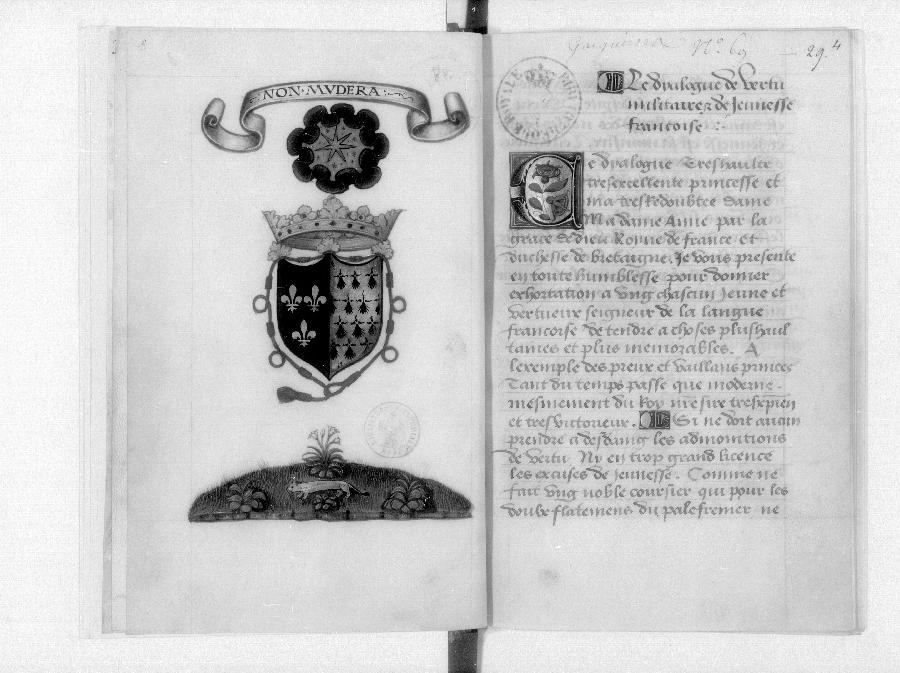 NON·MVDERA·
Nº. 69
29. 4
Le dyalogue de Vertu
militaire et de Jeunesse
francoise :·
Ce dyalogue Treshaulte
tresexcellente princesse et
ma tresRedoubtee dame
Madame Anne par la
grace de dieu Royne de france et
duchesse de bretaigne. Je vous presente
en toute humblesse pour donner
exhortation a vng chascun Jeune et
vertueux seigneur de la langue
francoise de tendre a choses plushaul
taines et plus memorables. A
lexemple des preux et vaillans princes
Tant du temps passe que moderne.
mesmement du Roy nre sire trescpien
et tresvictorieux. Si ne doit aucun
prendre a desdaing les admonitions
de vertu Ny en trop grand licence
les excuses de Jeunesse. Comme ne
fait vng noble coursier qui pour les
doubz flatemens du palefrenier ne